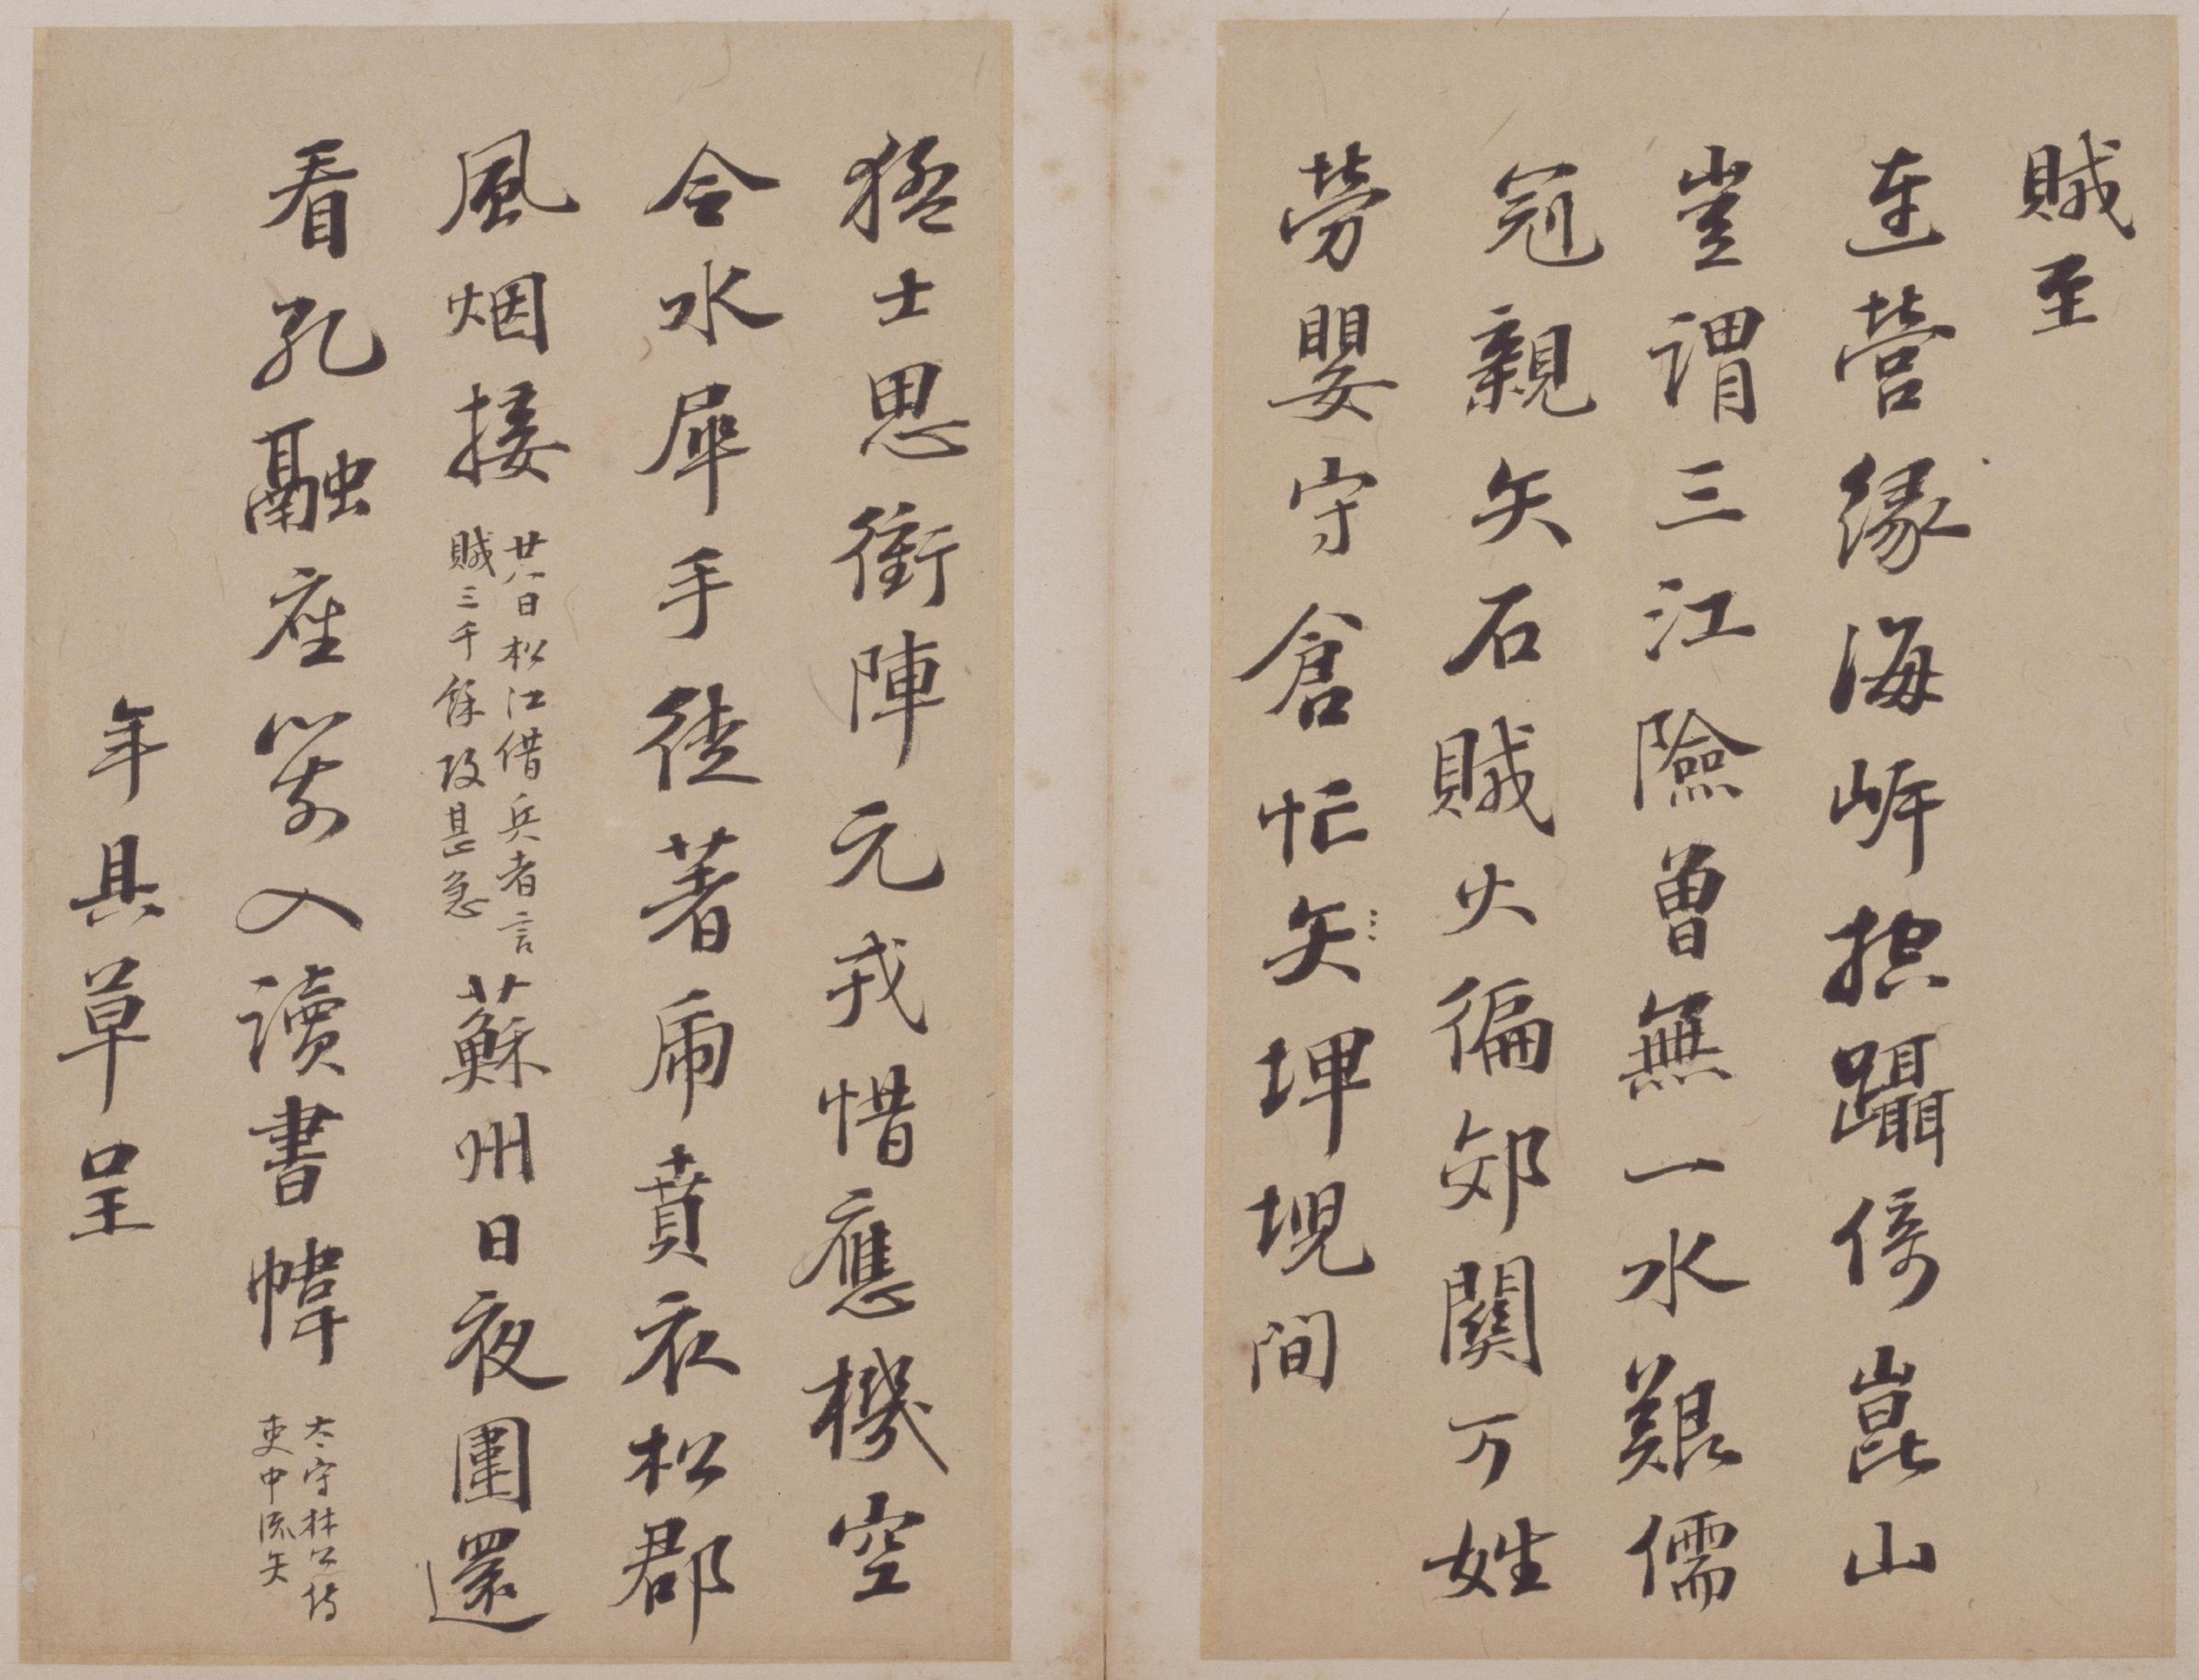 賊至
連營緣海岸控躡倚崑山
豈謂三江險曾無一水艱儒
冠親矢石賊火徧郊關万姓
勞嬰守倉忙矢埤堄間
猛士思衝陣元戎惜應機空
令水犀手徒著虎賁衣松郡
風烟接廿八日松江借兵者言賊三千餘攻甚急蘇州日夜圍還
看孔融座箭入讀書幃太守林公傍吏中流矢
年具草呈